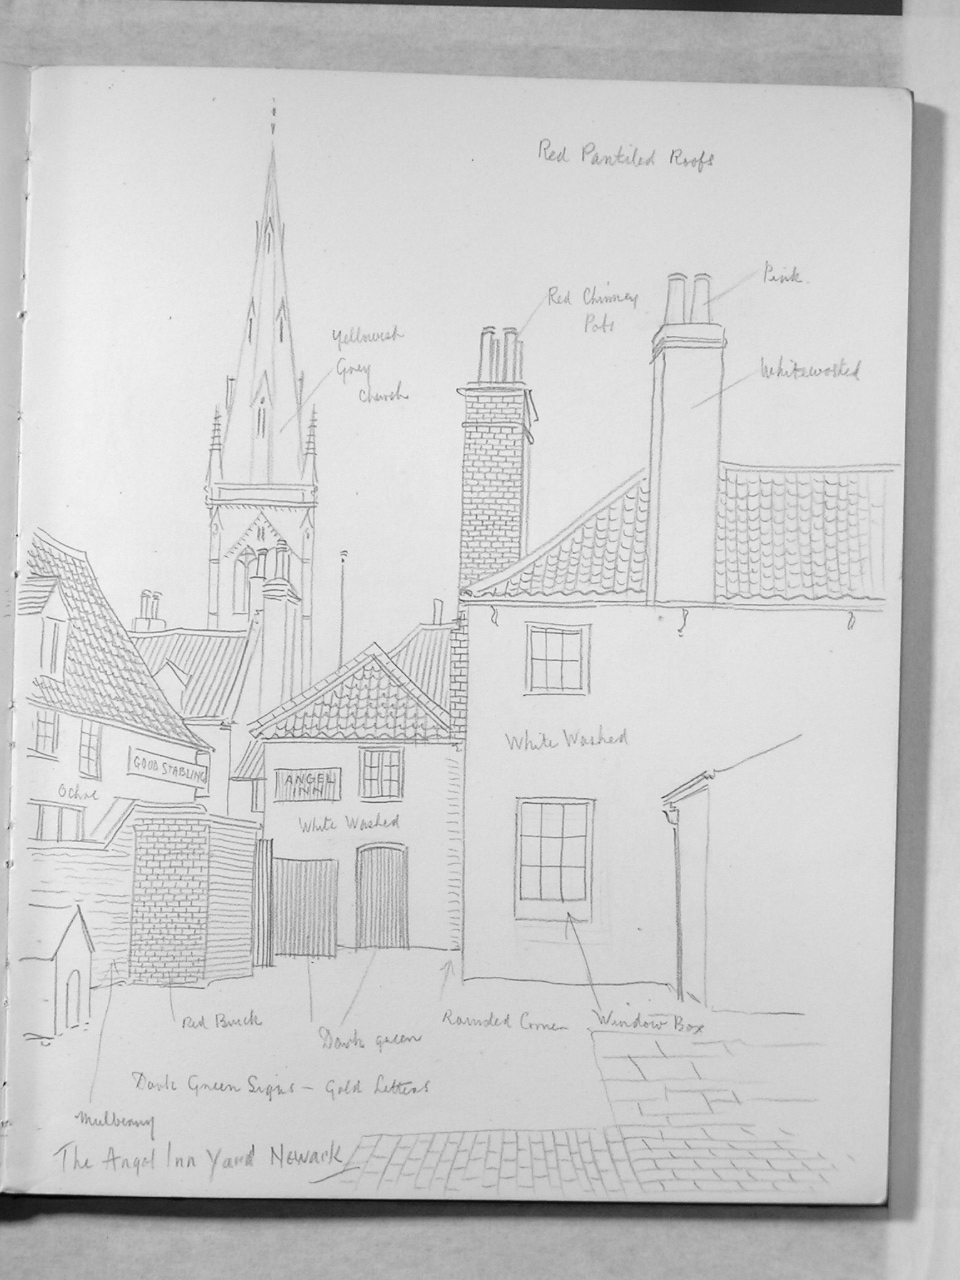 Red Pantiled Roofs
Pink
Red Chimney
Pots
Yellowish
Grey
Church
Whitewashed
White Washed
GOOD STABLING
ANGEL
INN
Ochre
White Washed
Red Brick
Dark green
Rounded Corner
Window Box
Dark Green Signs – Gold Letters
Mulberry
The Angel Inn Yard Newark